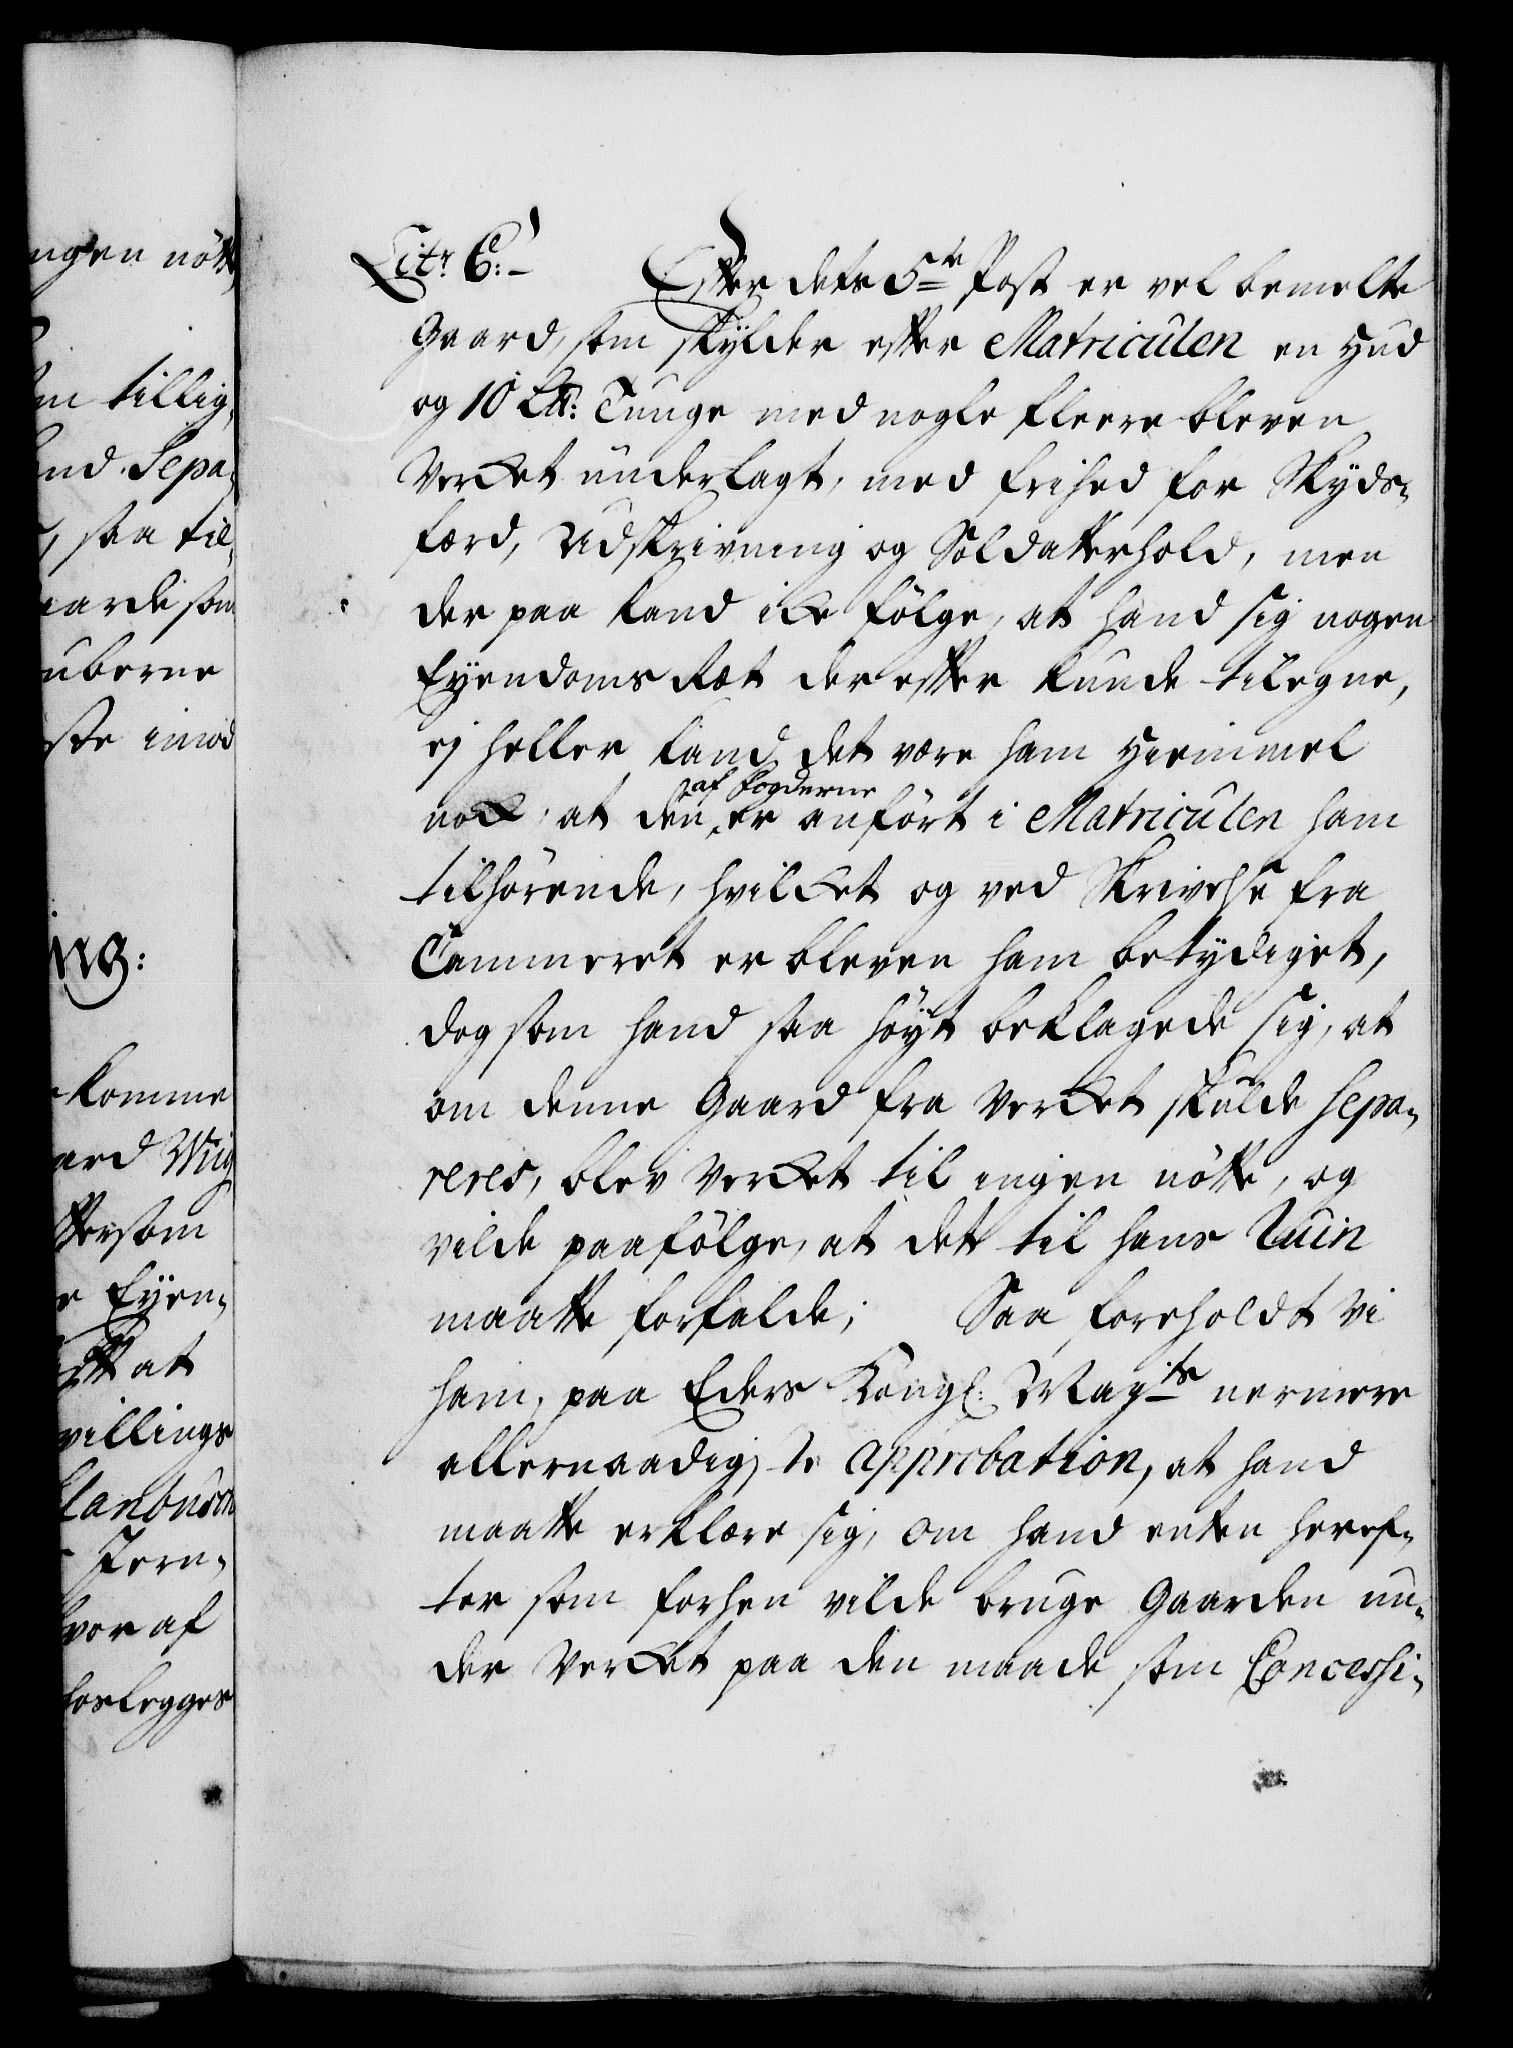 ngen nötte,
m tillig,
and Sepa-
, saa til,
aarde som
uberne
ste imod
ing:
komme
aard Wiig
ttersom
e Eÿen,
at
villings
Jern,
hvor af
foslegges
Litr E: Efter dets 5te Post er vel bemelte
Gaard, som skÿlder efter Matriculen en Hud
og 10 L℔: Tunge med nogle fleere bleven
Verket underlagt, med frihed for Skyds-
færd, Udskrivning og Soldatterhold, men
der paa kand ike følge, at hand sig nogen
Eÿendoms Ræt der efter kunde tilegne,
ej heller kand det være ham Hiemmel
af fogderne
nok, at den er anført i Matriculen ham
tilhørende, hvilket og ved Skrivelse fra
Cammeret er bleven ham betydiget,
dog som hand saa høÿt beklagede sig, at
om denne Gaard fra Verket skulde sepa-
reres, blev Verket til ingen nötte, og
vilde paafølge, at det til hans Ruin
maatte forfalde; Saa foreholdt Vi
ham, paa Eders Kongl: Mayts nermere
allernaadigste approbation, at hand
maatte erklære sig, om hand enten heref-
ter som forhen vilde bruge Gaarden un-
der Verket paa den maade som Concessi-